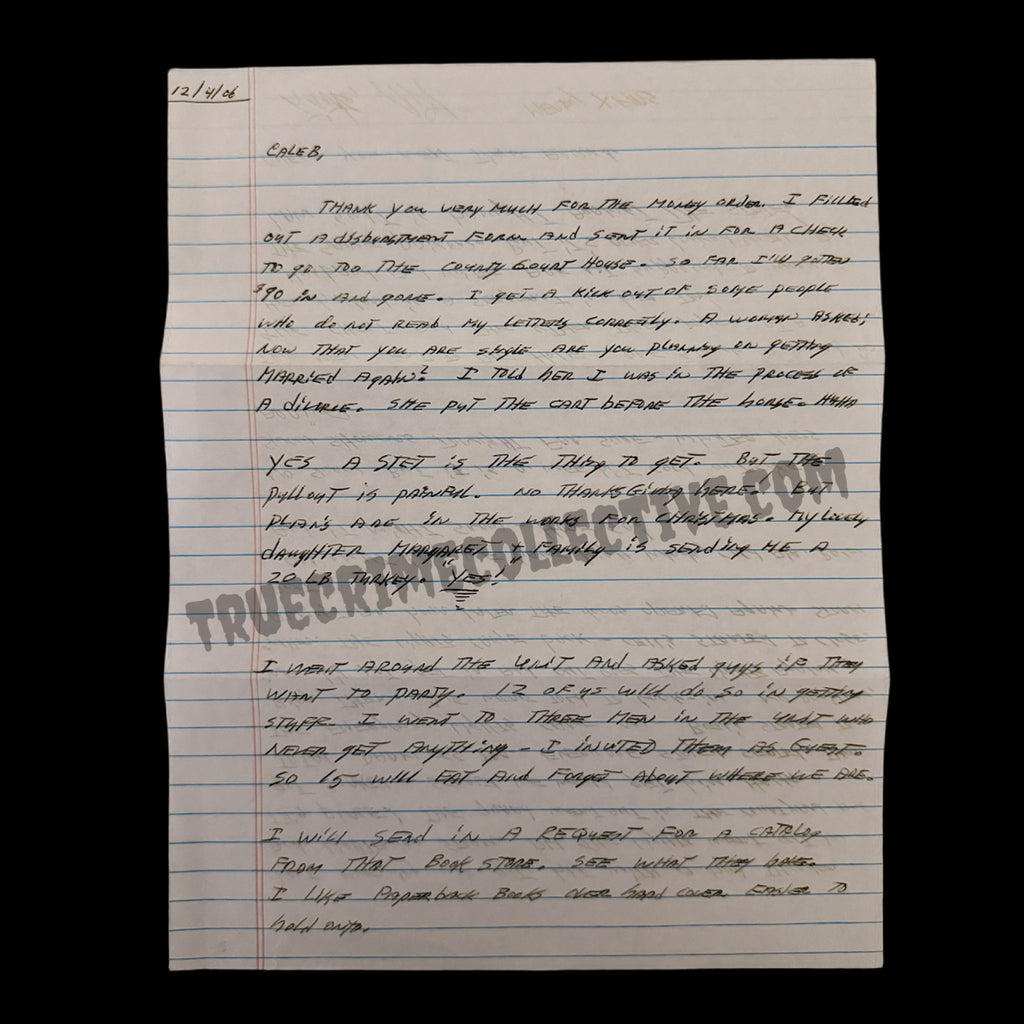 12/4/06
CALEB,
THANK YOU VERY MUCH FOR THE MONEY ORDER. I FILLED
OUT A DISBURSTMENT FORM AND SENT IT IN FOR A CHECK
TO GO TOO THE COUNTY COURT HOUSE. SO FAR I'VE GOTTEN
$90 IN AND GONE. I GET A KICK OUT OF SOME PEOPLE
WHO DO NOT READ MY LETTERS CORRECTLY. A WOMAN ASKED;
NOW THAT YOU ARE SINGLE ARE YOU PLANNING ON GETTING
MARRIED AGAIN? I TOLD HER I WAS IN THE PROCESS OF
A DIVORCE. SHE PUT THE CART BEFORE THE HORSE. HAHA
YES A STET IS THE THING TO GET. BUT THE
PULLOUT IS PAINFUL. NO THANKSGIVING HERE! BUT
PLAN'S ARE IN THE WORKS FOR CHRISTMAS. MY LOVELY
DAUGHTER MARGARET + FAMILY IS SENDING ME A
20 LB TURKEY. "YES!"
TRUECRIMECOLLECTIVE.COM
I WENT AROUND THE UNIT AND ASKED GUYS IF THEY
WANT TO PARTY. 12 OF US WILL DO SO IN GETTING
STUFF. I WENT TO THREE MEN IN THE UNIT WHO
NEVER GET ANYTHING - I INVITED THEM AS GUEST.
SO 15 WILL EAT AND FORGET ABOUT WHERE WE ARE.
I WILL SEND IN A REQUEST FOR A CATALOG
FROM THAT BOOK STORE. SEE WHAT THEY HAVE.
I LIKE PAPERBACK BOOKS OVER HARD COVER EASIER TO
HOLD ONTO.